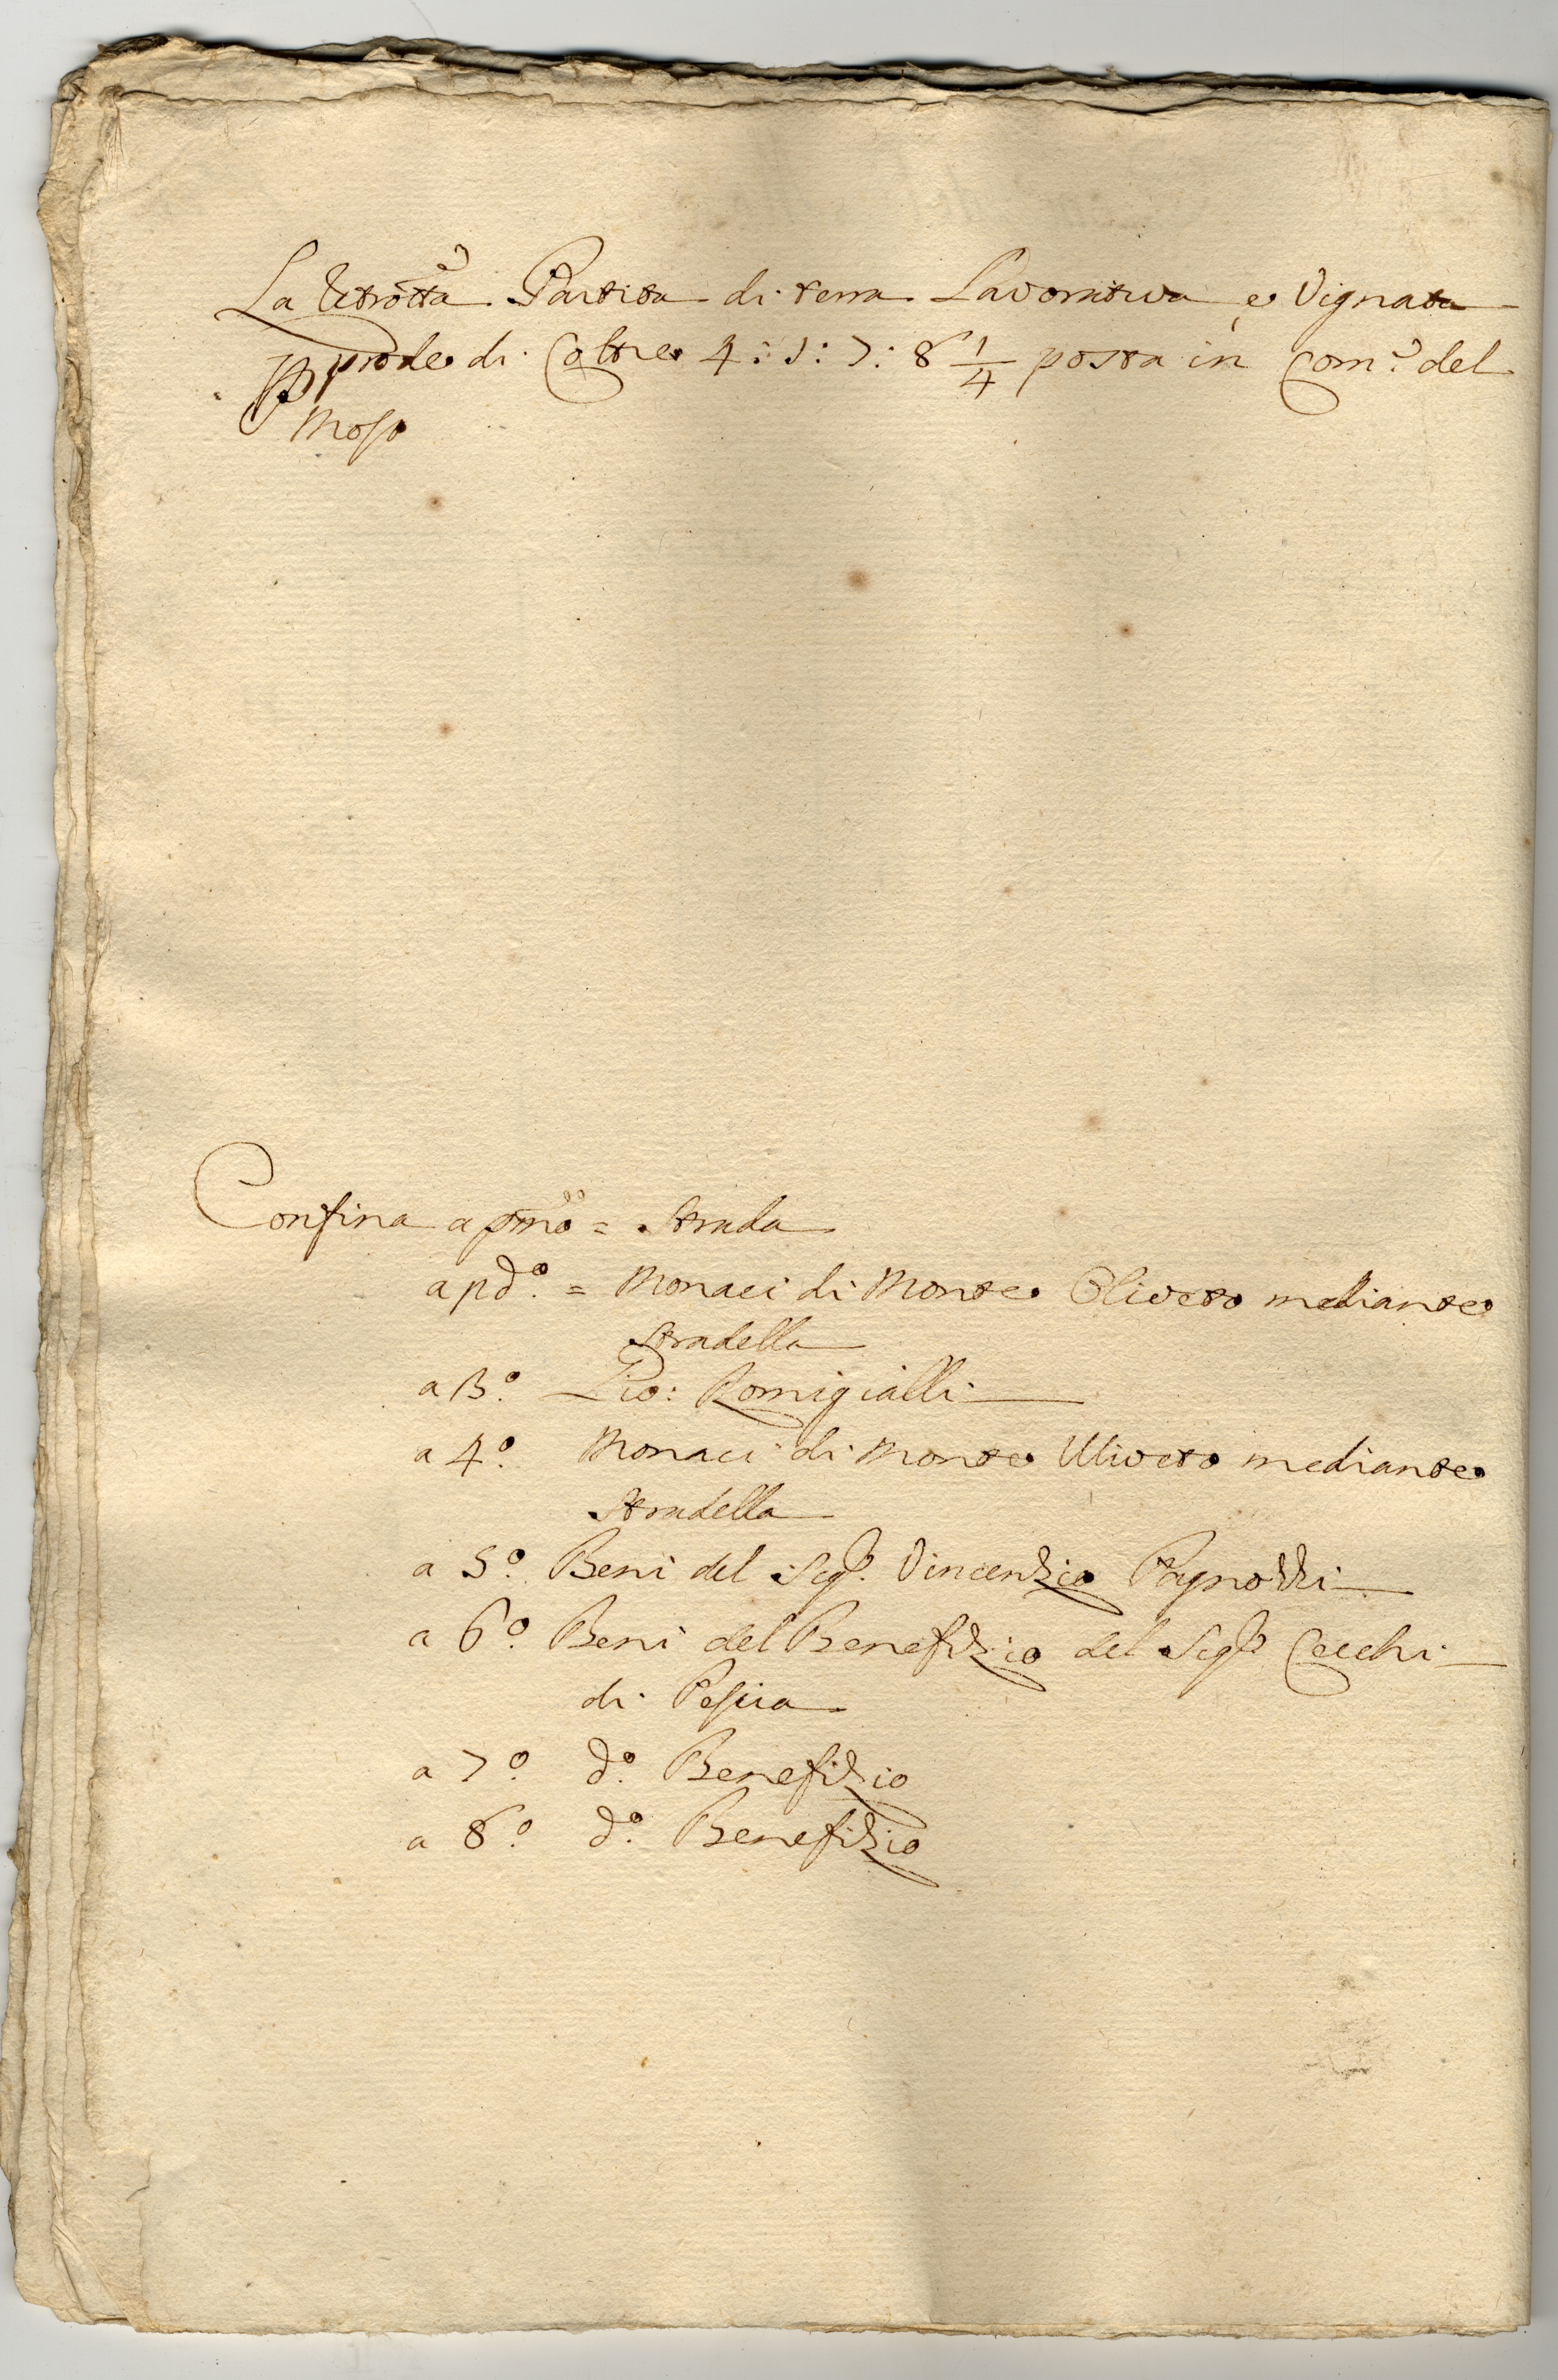 La Partita di terra Lavorativa e Vignata
prode di Coltre 4: 1: 7: 8 1/4 posta in Com.e del
Moso
Confina a pmo = Strada
a pdo. = Monaci di Monte Oliveto mediante
Stradella
a 3o. Pio: Romigialli
a 4o. Monaci di Monte Uliveto mediante
Stradella
a 5o. Beni del Sigr. Vincenzio Pagnozzi
a 6o. Beni del Benefizio del Sigr. Cecchi
di Pescia
a 7o. do. Benefizio
a 8o. do. Benefizio